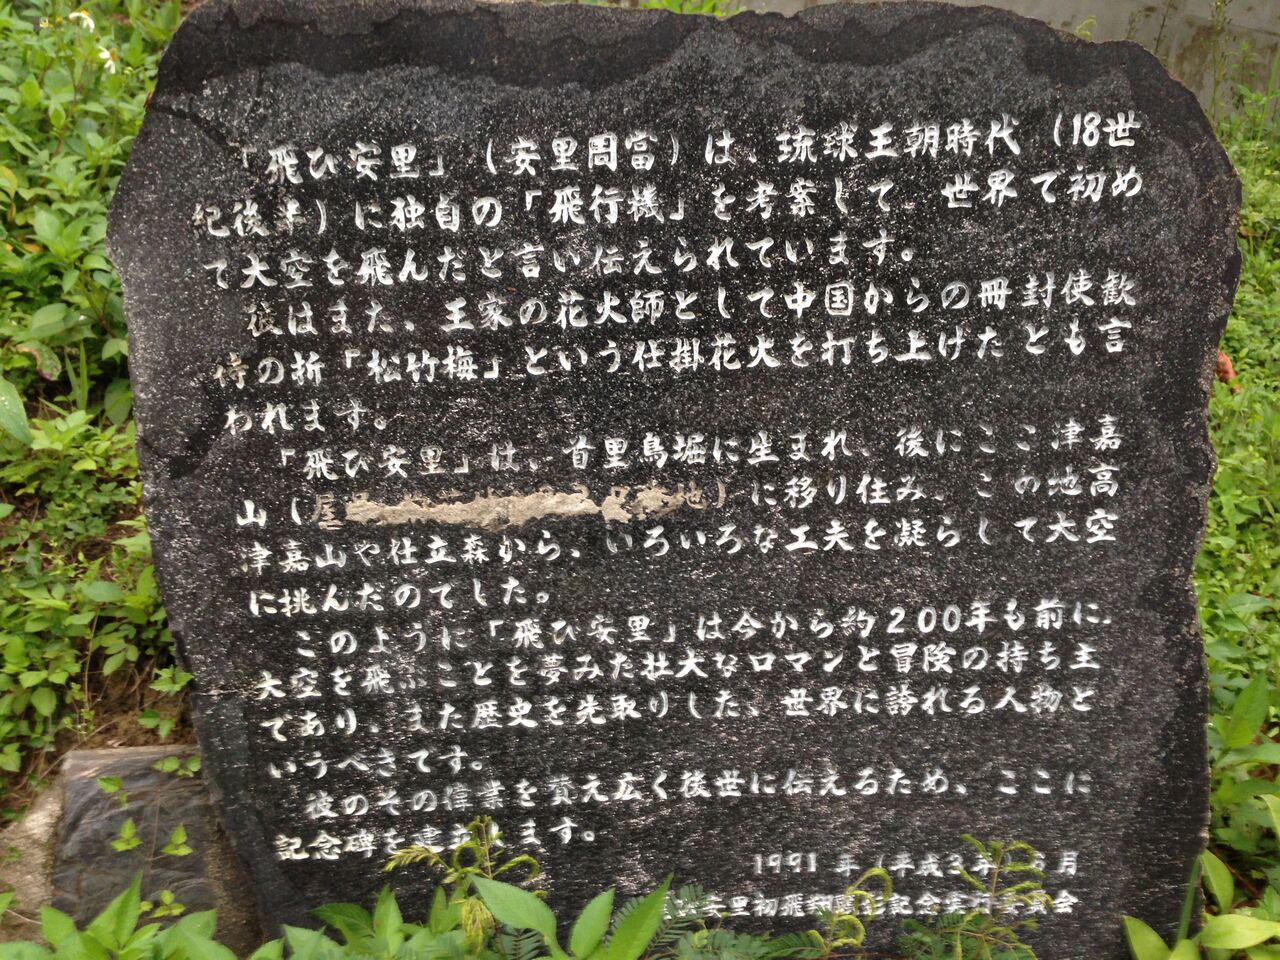 「飛び安里」(安里周當)は、琉球王朝時代(18世
紀後半)に独自の「飛行機」を考案して 世界で初め
て大空を飛んだと言い伝えられています。
彼はまた、王家の花火師として中国からの冊封使歓
待の折「松竹梅」という仕掛花火を打ち上げたとも言
われます。
「飛び安里」は、首里鳥堀に生まれ、後にここ津嘉
山(に移り住み、この地高
津嘉山や仕立森から、いろいろな工夫を凝らして大空
に挑んだのでした。
このように「飛び安里」は今から約200年も前に、
大空を飛ぶことを夢みた壮大なロマンと冒険の持ち主
であり、また歴史を先取りした、世界に誇れる人物と
いうべきです。
彼のその偉業を賞え広く後世に伝えるため、ここに
記念碑を建立します。
1991年(平成3年)月
安里初飛翔顕彰記念実行委員会